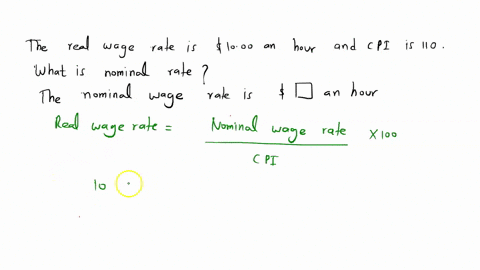 The real wage rate is $10.00 an hour and CPI is 110.
What is nominal rate?
The nominal wage rate is $ □ an hour
Real wage rate = Nominal wage rate / CPI × 100
10